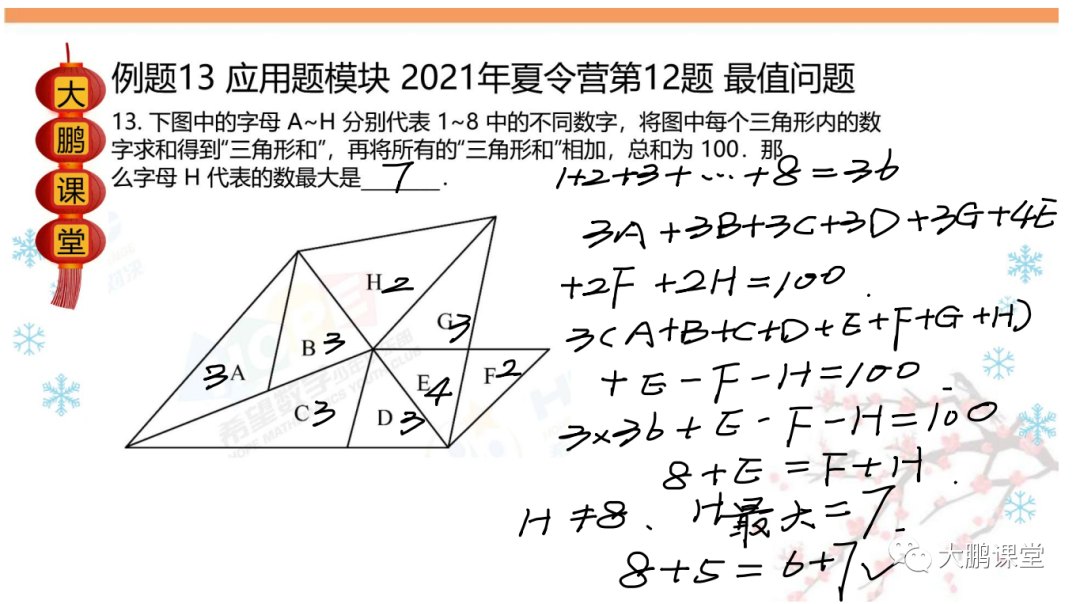 大
鹏
课
堂
例题13 应用题模块 2021年夏令营第12题 最值问题
13. 下图中的字母 A~H 分别代表 1~8 中的不同数字，将图中每个三角形内的数
字求和得到“三角形和”，再将所有的“三角形和”相加，总和为 100．那
么字母 H 代表的数最大是 7 ．
1+2+3+…+8=36
3A+3B+3C+3D+3G+4E
+2F+2H=100.
3(A+B+C+D+E+F+G+H)
+E-F-H=100.
3×36+E-F-H=100
8+E=F+H.
H≠8、H最大=7.
8+5=6+7✓
H2
G3
B3
3A
E4
F2
C3
D3
大鹏课堂